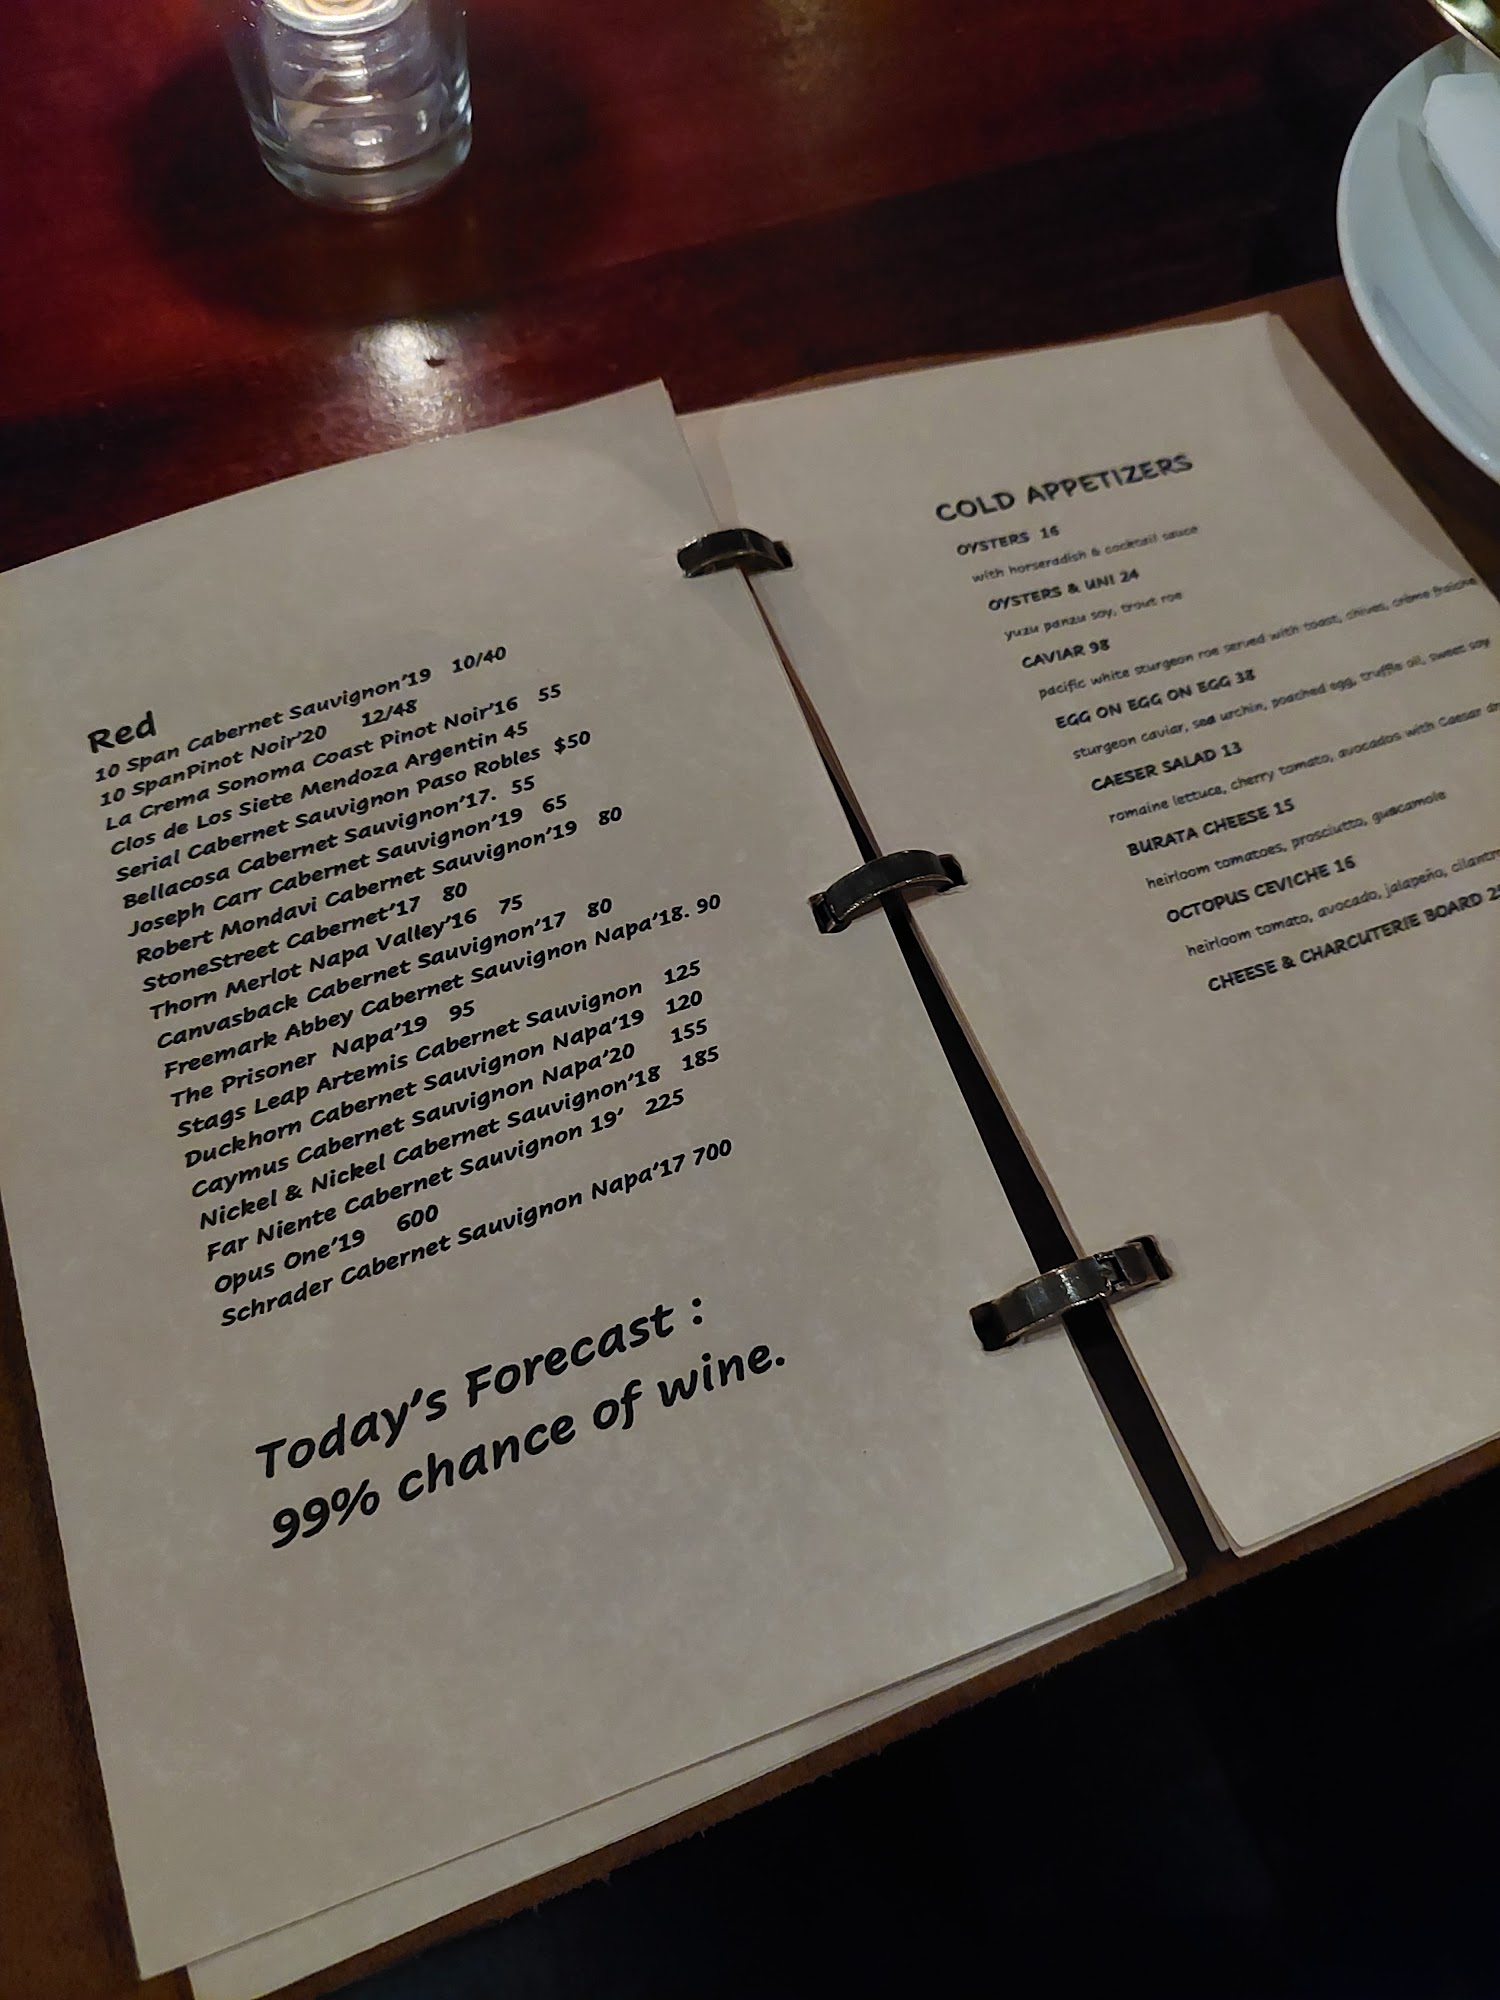 Red
10 Span Cabernet Sauvignon'19 10/40
10 SpanPinot Noir'20 12/48
La Crema Sonoma Coast Pinot Noir'16 55
Clos de Los Siete Mendoza Argentin 45
Serial Cabernet Sauvignon Paso Robles $50
Bellacosa Cabernet Sauvignon'17. 55
Joseph Carr Cabernet Sauvignon'19 65
Robert Mondavi Cabernet Sauvignon'19 80
StoneStreet Cabernet'17 80
Thorn Merlot Napa Valley'16 75
Canvasback Cabernet Sauvignon'17 80
Freemark Abbey Cabernet Sauvignon Napa'18. 90
The Prisoner Napa'19 95
Stags Leap Artemis Cabernet Sauvignon 125
Duckhorn Cabernet Sauvignon Napa'19 120
Caymus Cabernet Sauvignon Napa'20 155
Nickel & Nickel Cabernet Sauvignon'18 185
Far Niente Cabernet Sauvignon 19' 225
Opus One'19 600
Schrader Cabernet Sauvignon Napa'17 700
Today's Forecast :
99% chance of wine.
COLD APPETIZERS
OYSTERS 16
with horseradish & cocktail sauce
OYSTERS & UNI 24
yuzu panzu soy, trout roe
CAVIAR 98
pacific white sturgeon roe served with toast, chives, crème fraiche
EGG ON EGG ON EGG 38
sturgeon caviar, sea urchin, poached egg, truffle oil, sweet soy
CAESER SALAD 13
romaine lettuce, cherry tomato, avocados with Caesar
BURATA CHEESE 15
heirloom tomatoes, prosciutto, guacamole
OCTOPUS CEVICHE 16
heirloom tomato, avocado, jalapeño,
CHEESE & CHARCUTERIE BOARD